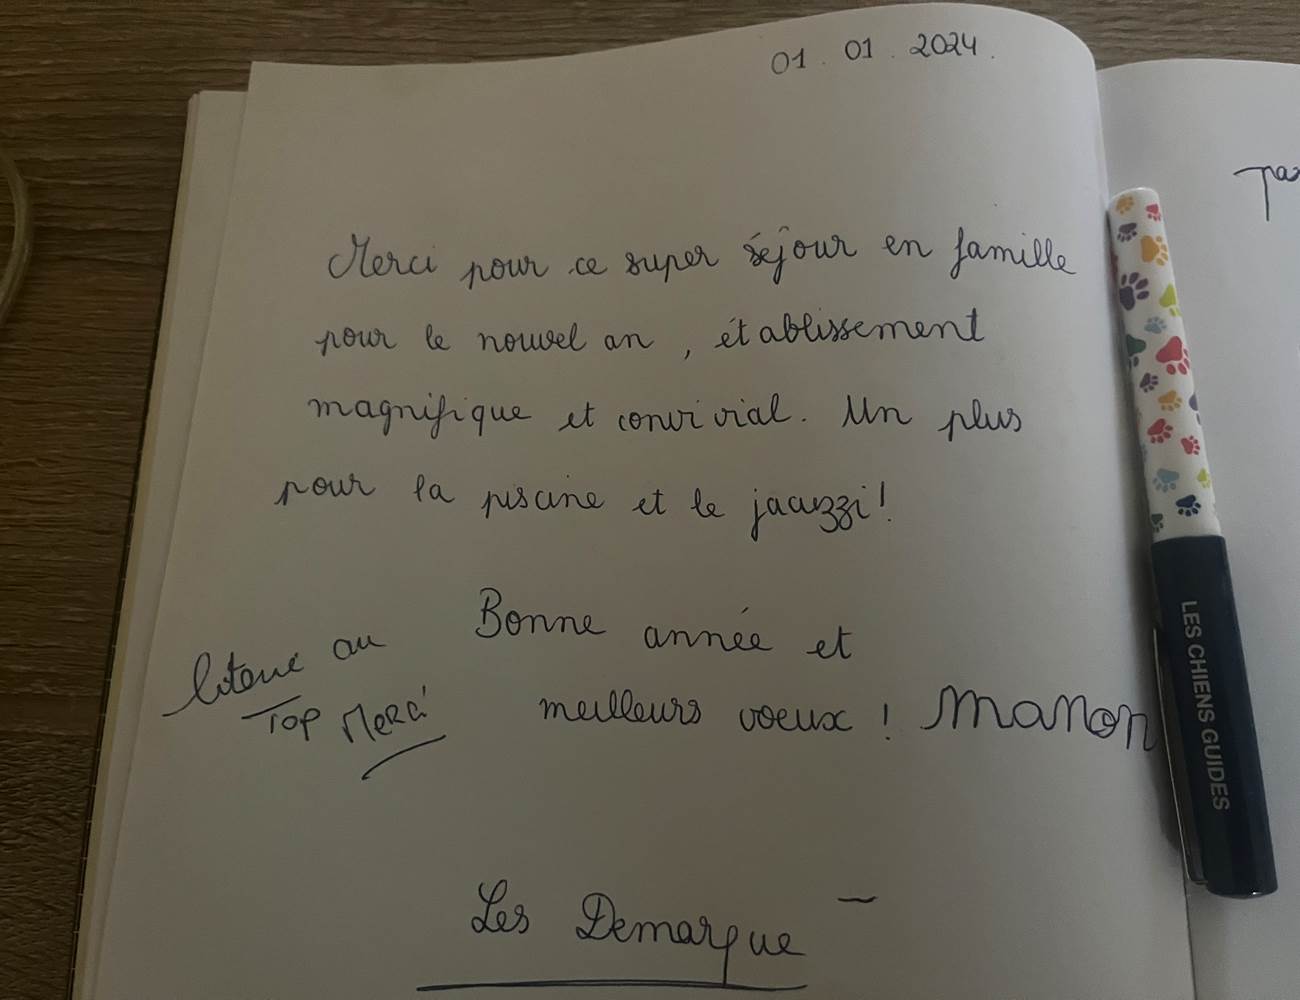 01. 01. 2024.
Merci pour ce super séjour en famille
pour le nouvel an, établissement
magnifique et convivial. Un plus
pour la piscine et le jacuzzi!
Bonne année et
meilleurs voeux! Manon
au
TOP Merci
Les Demarque
LES CHIENS GUIDES